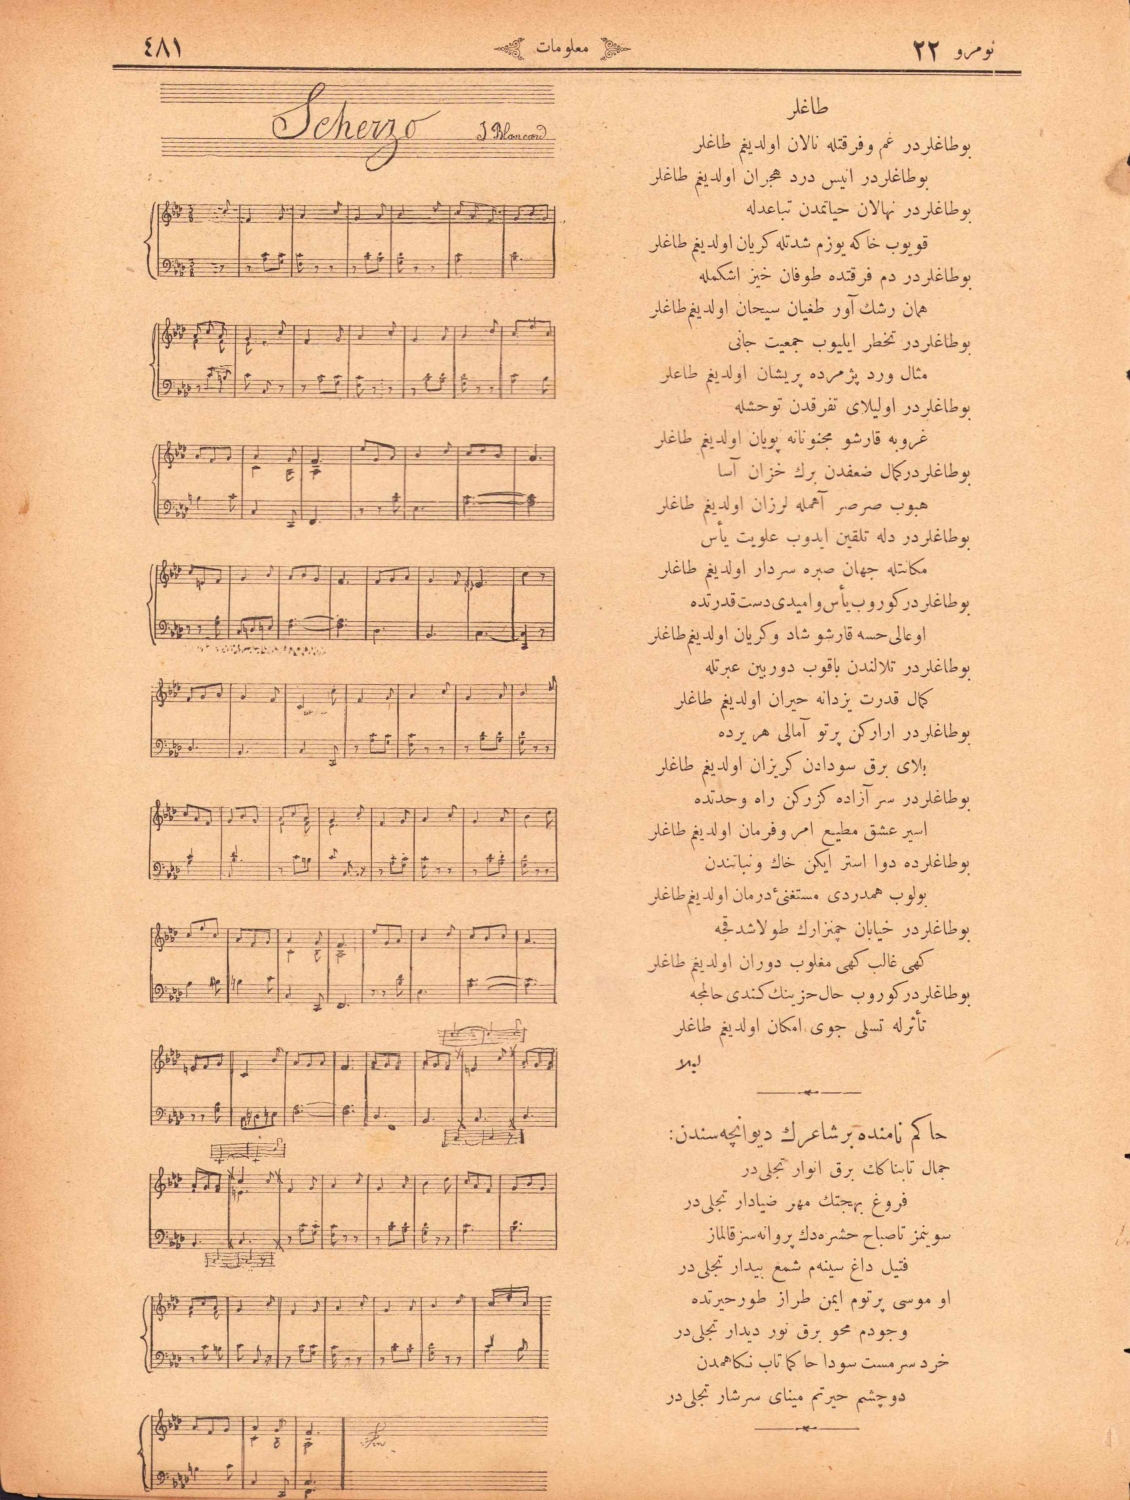 نومرو ٢٢
معلومات
٤٨١
طاغلر
بوطاغلردر غم وفرقتله نالان اولديغم طاغلر
بوطاغلردر انيس درد هجران اولديغم طاغلر
بوطاغلردر نهالان حياتمدن تباعدله
قويوب خاكه يوزم شدتله كريان اولديغم طاغلر
بوطاغلردر دم فرقتده طوفان خيز اشكمله
همان رشك آور طغيان سيحان اولديغم طاغلر
بوطاغلردر تخطر ايليوب جمعيت جانى
مثال ورد پژمرده پريشان اولديغم طاغلر
بوطاغلردر اوليلاى تفرقدن توحشله
غروبه قارشو مجنونانه پويان اولديغم طاغلر
بوطاغلردر كمال ضعفدن برك خزان آسا
هبوب صرصر آهمله لرزان اولديغم طاغلر
بوطاغلردر دله تلقين ايدوب علويت يأس
مكانتله جهان صبره سردار اولديغم طاغلر
بوطاغلردر كوروب يأس واميدى دست قدرتده
اوعالى حسه قارشو شاد وكريان اولديغم طاغلر
بوطاغلردر تلالندن باقوب دوربين عبرتله
كمال قدرت يزدانه حيران اولديغم طاغلر
بوطاغلردر اراركن پرتو آمالى هر يرده
بلاى برق سودادن كريزان اولديغم طاغلر
بوطاغلردر سر آزاده كزركن راه وحدتده
اسير عشق مطيع امر وفرمان اولديغم طاغلر
بوطاغلرده دوا استر ايكن خاك ونباتندن
بولوب همدردى مستغنئ درمان اولديغم طاغلر
بوطاغلردر خيابان چمنزارك طولاشدقجه
كهى غالب كهى مغلوب دوران اولديغم طاغلر
بوطاغلردر كوروب حال حزينك كندى حالمجه
تأثرله تسلى جوى امكان اولديغم طاغلر
ليلا
حاكم نامنده برشاعرك ديوانچه سندن:
جمال تابناكك برق انوار تجلى در
فروغ بهجتك مهر ضيادار تجلى در
سوينمز تاصباح حشره دك پروانه سز قالماز
فتيل داغ سينه م شمع بيدار تجلى در
او موسى پرتوم ايمن طراز طور حيرتده
وجودم محو برق نور ديدار تجلى در
خرد سرمست سودا حاكما تاب نكاهمدن
دوچشم حيرتم ميناى سرشار تجلى در
Scherzo
J. Blancard
Fin